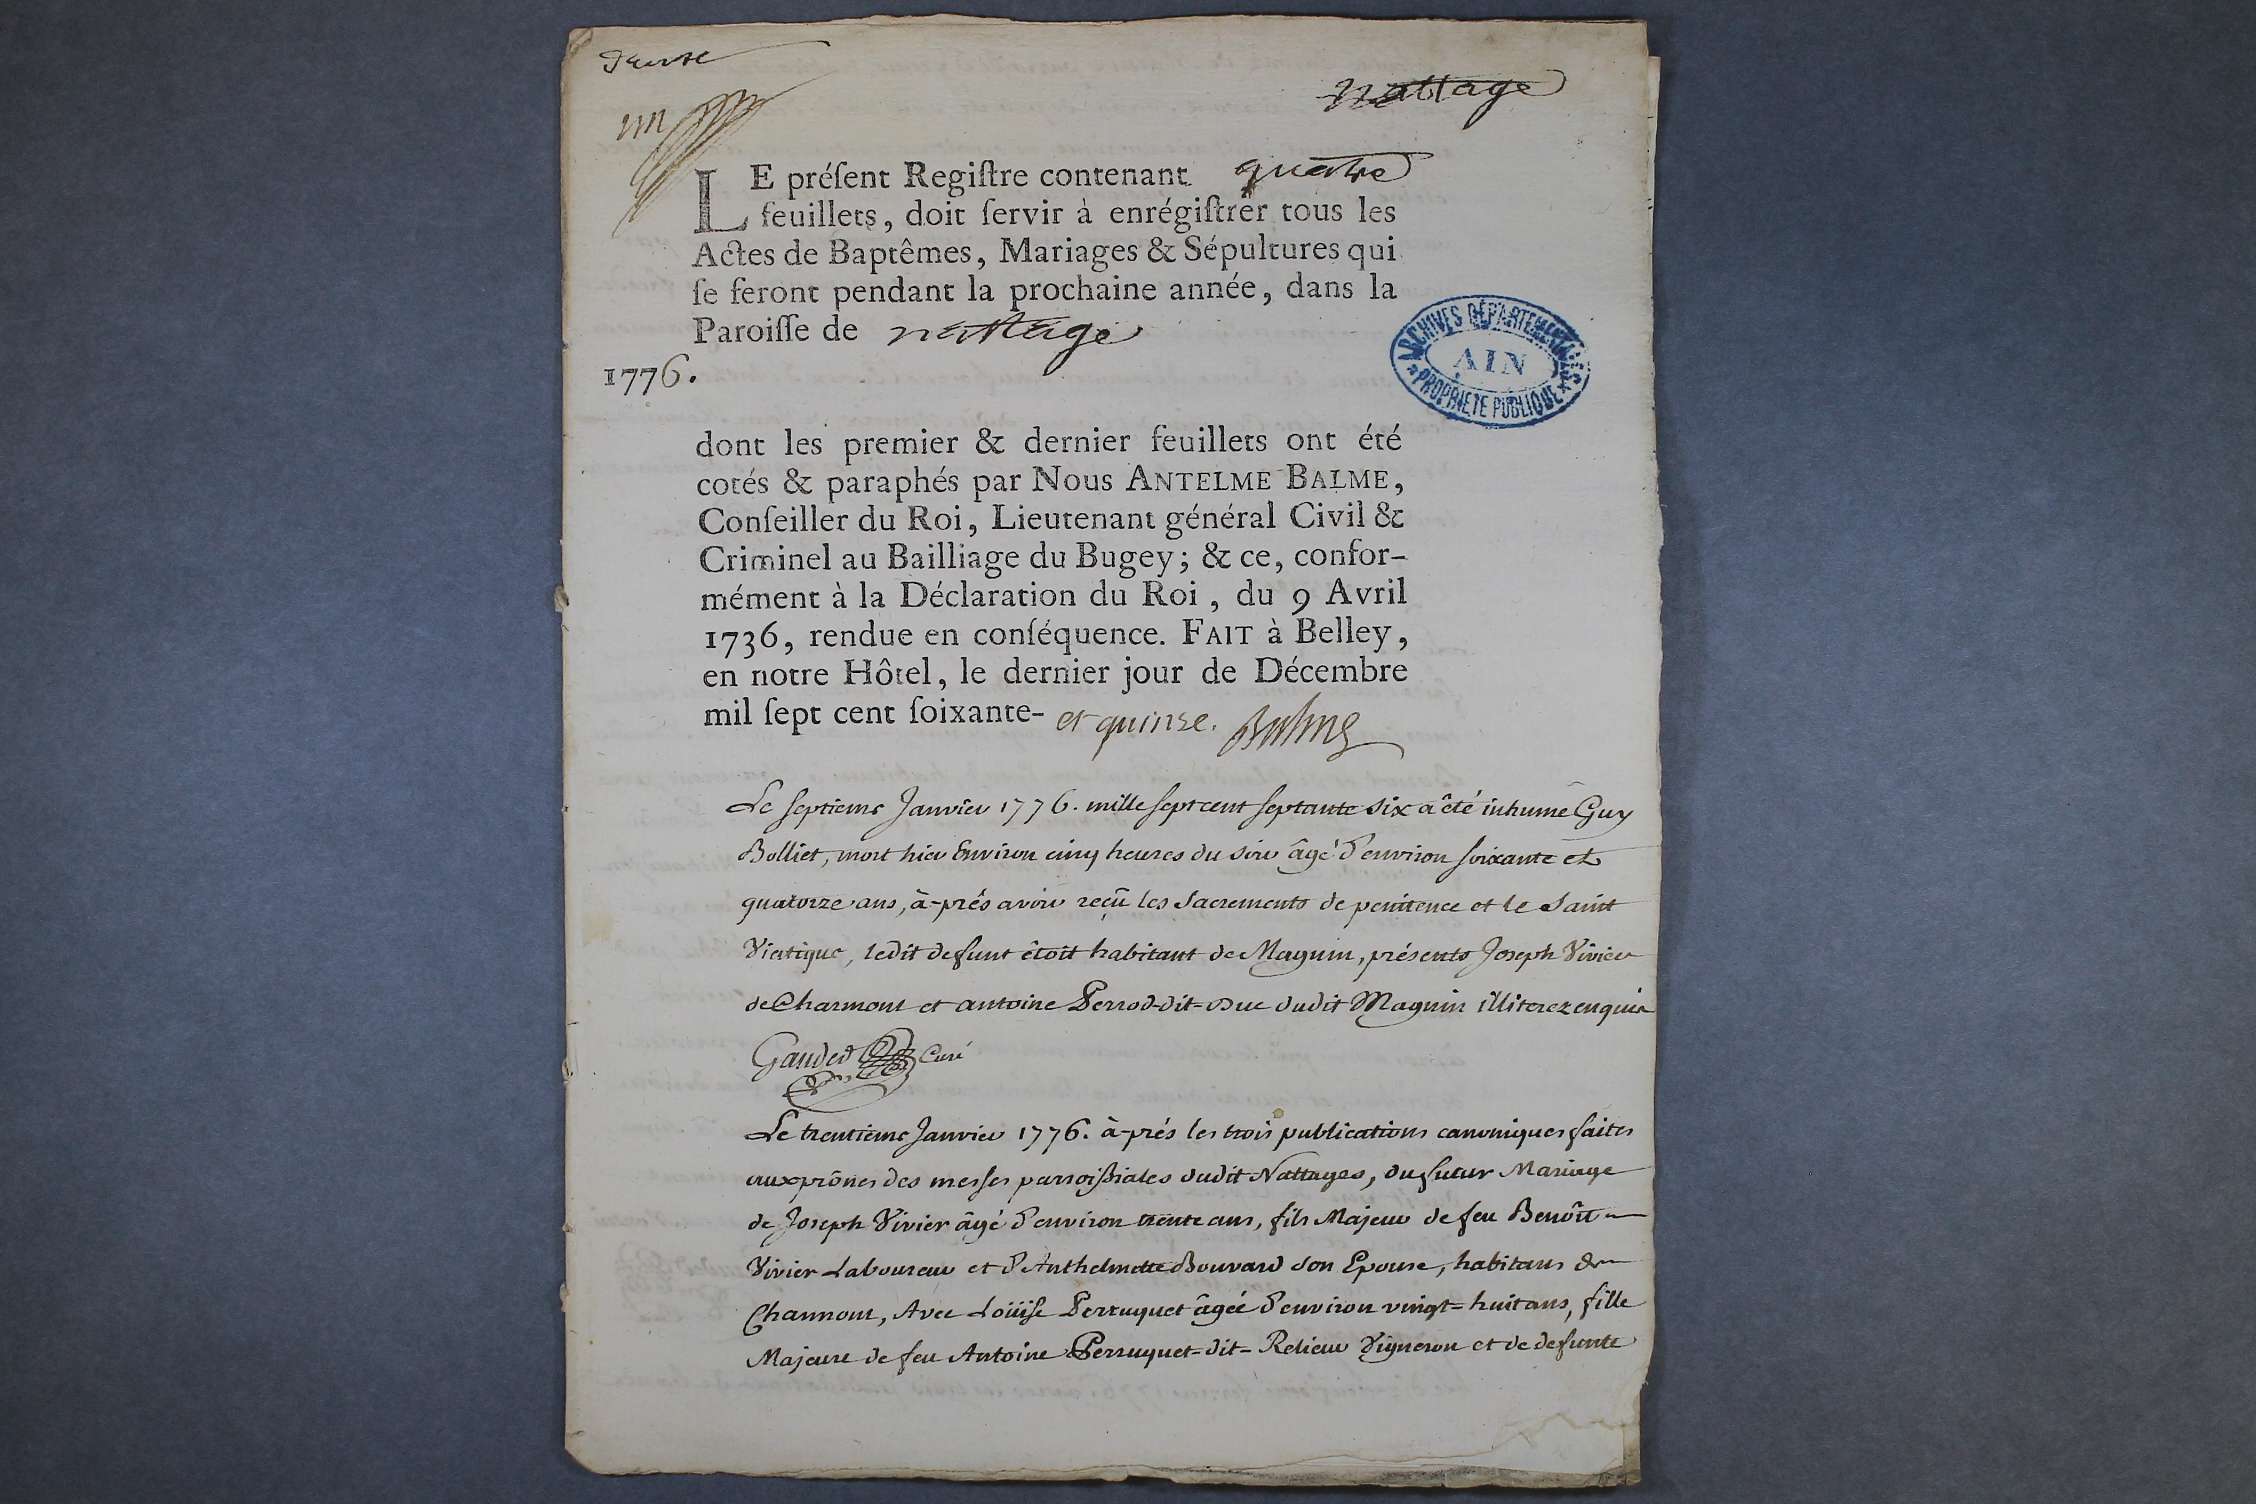 nattage
un
LE préſent Regiſtre contenant quatre
feuillets, doit ſervir à enrégiſtrer tous les
Actes de Baptêmes, Mariages & Sépultures qui
ſe feront pendant la prochaine année, dans la
Paroiſſe de nattage
1776.
ARCHIVES DÉPARTEMENTALES
AIN
PROPRIÉTÉ PUBLIQUE
dont les premier & dernier feuillets ont été
cotés & paraphés par Nous ANTELME BALME,
Conſeiller du Roi, Lieutenant général Civil &
Criminel au Bailliage du Bugey; & ce, confor-
mément à la Déclaration du Roi, du 9 Avril
1736, rendue en conſéquence. FAIT à Belley,
en notre Hôtel, le dernier jour de Décembre
mil ſept cent ſoixante- et quinse. Balme
Le septieme Janvier 1776. mille sept cent septante six a été inhumé Guy
Bolliet, mort hier Environ cinq heures du soir âgé d'environ soixante et
quatorze ans, à-prés avoir reçû les Sacrements de penitence et le Saint
Viatique, ledit defunt étoit habitant de Magnin, présents Joseph Vivier
de Charmont et antoine Perrod-dit-Duc dudit Magnin illiterez enquis
Gauded Curé
Le trentieme Janvier 1776. à-prés les trois publications canoniques faites
aux prônes des messes parroissiales dudit Nattages, du futur Mariage
de Joseph Vivier âgé d'environ trente ans, fils Majeur de feu Benôit
Vivier Laboureur et d'Anthelmette Bouvard son Epouse, habitans de
Charmont, Avec Loüise Perruquet âgée d'environ vingt=huit ans, fille
Majeure de feu Antoine Perruquet=dit=Relieur Vigneron et de defunte